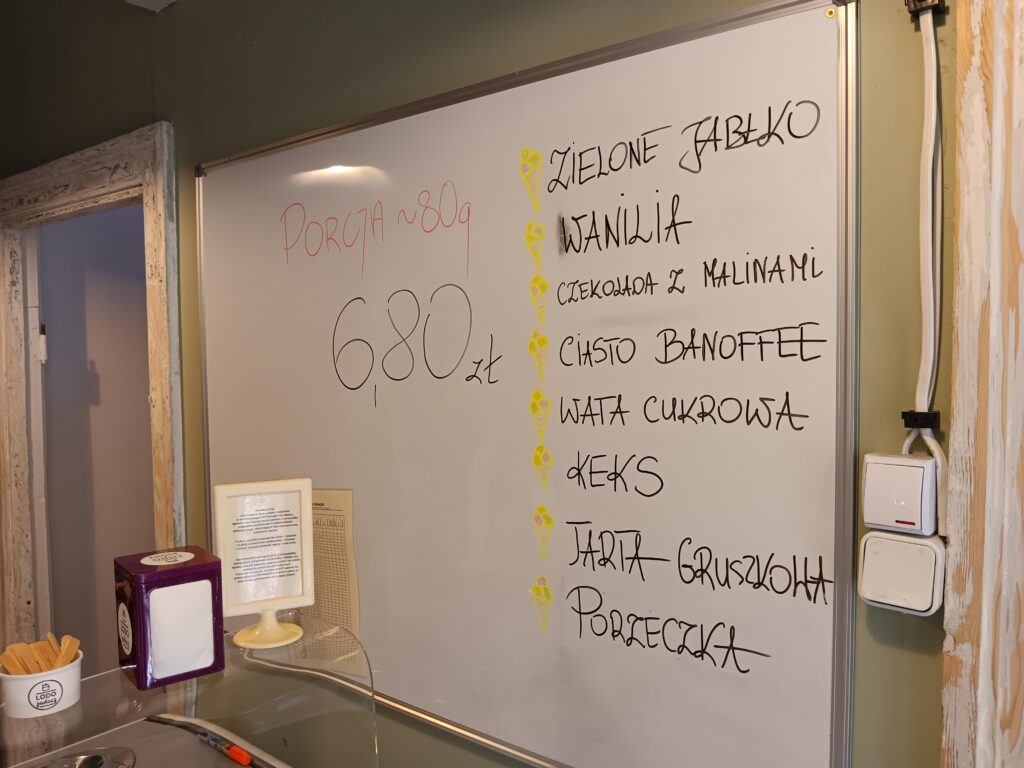 PORCJA ~80g
6,80 zł
ZIELONE JABŁKO
WANILIA
CZEKOLADA Z MALINAMI
CIASTO BANOFFEE
WATA CUKROWA
KEKS
TARTA GRUSZKOWA
PORZECZKA
LODO